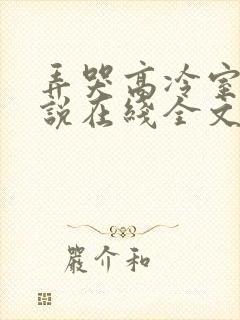 弄哭高冷室
說在綫全文
嚴介和